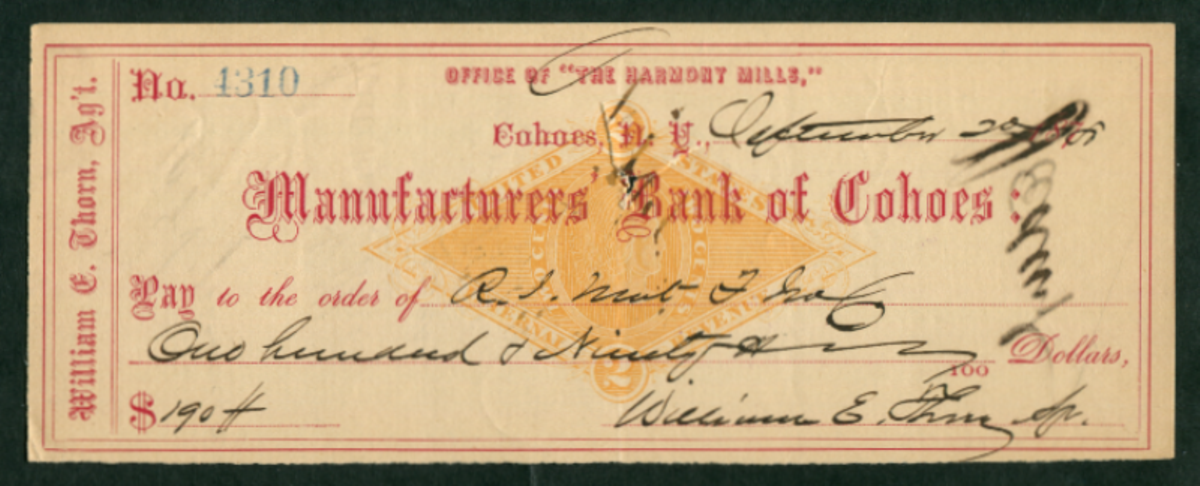 No. 4310
OFFICE OF "THE HARMONY MILLS,"
Cohoes, N. Y., September
Manufacturers' Bank of Cohoes:
Pay to the order of R. I.
One hundred & Ninety
100 Dollars,
$190
William E. Thorn
William E. Thorn, Ag't.
UNITED STATES
INTERNAL REVENUE
2